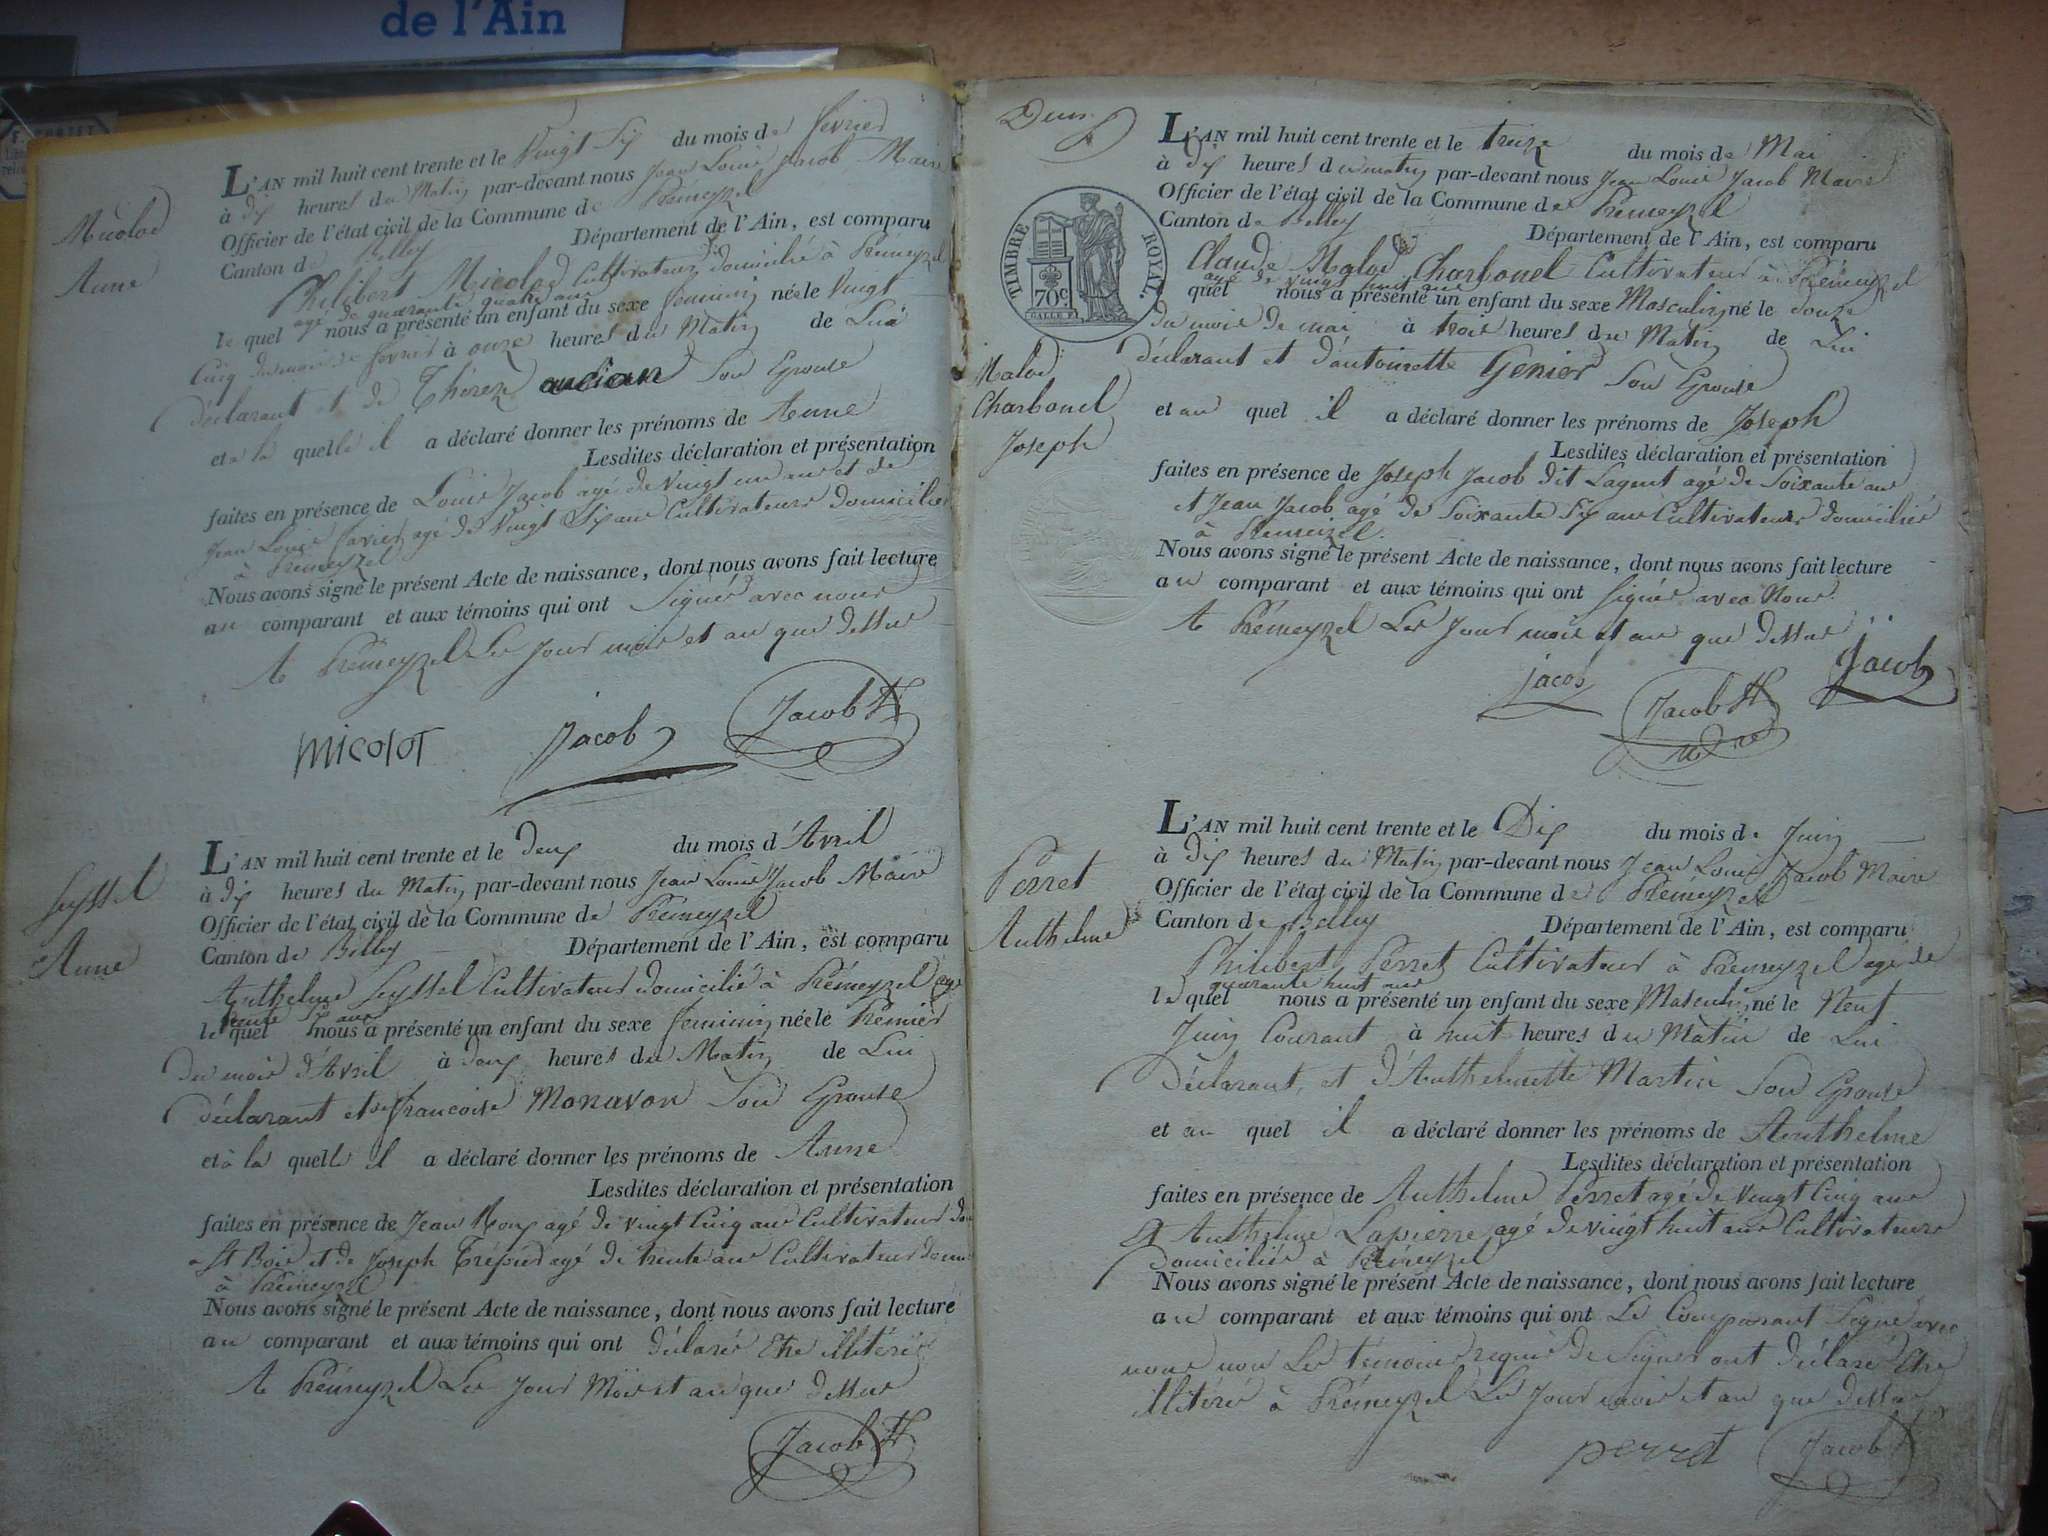 de l'Ain
Micolod
Anne
L'AN mil huit cent trente et le Vingt Six du mois de fevrier
à dix heures du Matin par-devant nous Jean Louis Jacob Maire
Officier de l'état civil de la Commune de Prémeyzel
Canton de Belley Département de l'Ain, est comparu
Philibert Micolod Cultivateur domicilié à Prémeyzel
agé de quarante quatre ans
le quel nous a présenté un enfant du sexe feminin née le Vingt
Cinq du mois de fevrier à onze heures du Matin de Lui
déclarant et de Thérèze Son Epouse
et à la quelle il a déclaré donner les prénoms de Anne
Lesdites déclaration et présentation
faites en présence de Louis Jacob agé de Vingt un ans et de
Jean Louis agé de Vingt Six ans Cultivateurs domiciliés
à Prémeyzel
Nous avons signé le présent Acte de naissance, dont nous avons fait lecture
au comparant et aux témoins qui ont Signés avec nous
A Prémeyzel Les Jour mois et an que dessus
MICOLOT Jacob Jacob
Seyssel
Anne
L'AN mil huit cent trente et le deux du mois d'Avril
à dix heures du Matin par-devant nous Jean Louis Jacob Maire
Officier de l'état civil de la Commune de Prémeyzel
Canton de Belley Département de l'Ain, est comparu
Anthelme Seyssel Cultivateur domicilié à Prémeyzel agé
le quel nous a présenté un enfant du sexe feminin née le Prémier
du mois d'Avril à deux heures du Matin de Lui
déclarant et de francoise Monavon Son Epouse
et à la quelle il a déclaré donner les prénoms de Anne
Lesdites déclaration et présentation
faites en présence de Jean Roux agé de vingt Cinq ans Cultivateur
à St Bois et de Joseph Trépied agé de trente ans Cultivateur
à Prémeyzel
Nous avons signé le présent Acte de naissance, dont nous avons fait lecture
au comparant et aux témoins qui ont déclaré Etre illitérés
A Prémeyzel Les Jour Mois et an que dessus
Jacob
Deux
TIMBRE ROYAL.
70c
Malod
Charbonel
Joseph
L'AN mil huit cent trente et le treize du mois de Mai
à dix heures du matin par-devant nous Jean Louis Jacob Maire
Officier de l'état civil de la Commune de Prémeyzel
Canton de Belley Département de l'Ain, est comparu
Claude Malod Charbonel Cultivateur à Prémeyzel
agé de vingt huit ans
quel nous a présenté un enfant du sexe Masculin né le douze
du mois de mai à trois heures du Matin de Lui
déclarant et d'antoinette Genier Son Epouse
et au quel il a déclaré donner les prénoms de Joseph
Lesdites déclaration et présentation
faites en présence de Joseph Jacob dit Lagent agé de Soixante ans
et Jean Jacob agé de Soixante Six ans Cultivateurs domiciliés
à Prémeizel.
Nous avons signé le présent Acte de naissance, dont nous avons fait lecture
au comparant et aux témoins qui ont Signés avec Nous.
A Prémeyzel Les Jour mois et an que dessus
jacob Jacob Jacob
Perret
Anthelme
L'AN mil huit cent trente et le Dix du mois de Juin
à dix heures du Matin par-devant nous Jean Louis Jacob Maire
Officier de l'état civil de la Commune de Prémeyzel
Canton de Belley Département de l'Ain, est comparu
Philibert Perret Cultivateur à Prémeyzel agé de
quarante huit ans
le quel nous a présenté un enfant du sexe Masculin né le Neuf
Juin Courant à huit heures du Matin de Lui
Déclarant, et d'Anthelmette Martin Son Epouse
et au quel il a déclaré donner les prénoms de Anthelme
Lesdites déclaration et présentation
faites en présence de Anthelme Perret agé de Vingt Cinq ans
et Anthelme Lapierre agé de vingt huit ans Cultivateurs
Domiciliés à Prémeyzel
Nous avons signé le présent Acte de naissance, dont nous avons fait lecture
au comparant et aux témoins qui ont Le Comparant Signé avec
nous non Les témoins requis de Signer ont déclaré Etre
illitérés à Prémeyzel Les Jour mois et an que dessus
perret Jacob